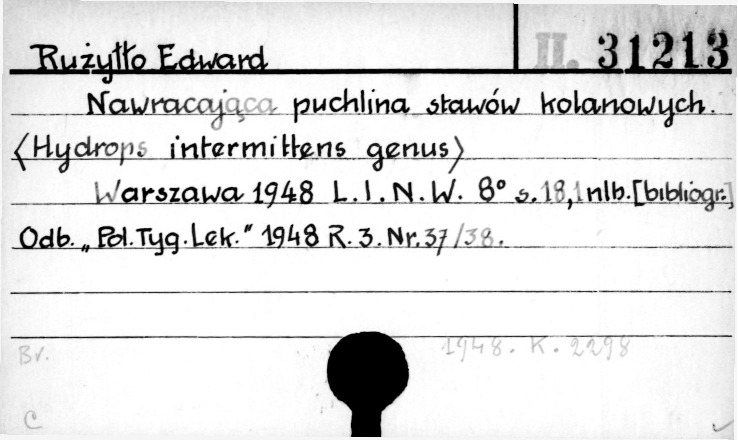 Rużyłło Edward II. 31213
Nawracająca puchlina stawów kolanowych.
<Hydrops intermittens genus>
Warszawa 1948 L.I.N.W. 8° s.18,1nlb.[bibliogr.]
Odb. „Pol.Tyg.Lek." 1948 R.3.Nr.37/38.
Br. 1948. K. 2298
C